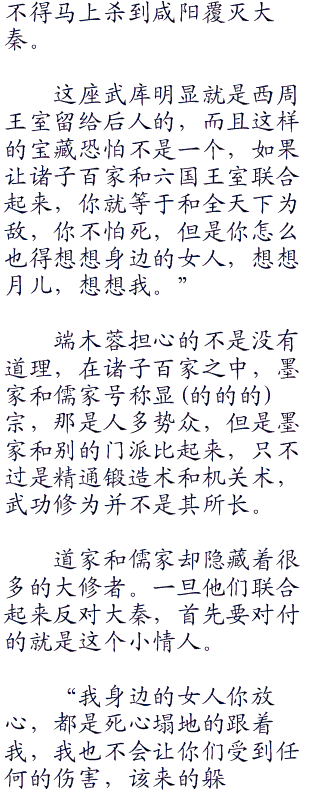 不得马上杀到咸阳覆灭大
秦。
这座武库明显就是西周
王室留给后人的，而且这样
的宝藏恐怕不是一个，如果
让诸子百家和六国王室联合
起来，你就等于和全天下为
敌，你不怕死，但是你怎么
也得想想身边的女人，想想
月儿，想想我。”
端木蓉担心的不是没有
道理，在诸子百家之中，墨
家和儒家号称显(的的的)
宗，那是人多势众，但是墨
家和别的门派比起来，只不
过是精通锻造术和机关术，
武功修为并不是其所长。
道家和儒家却隐藏着很
多的大修者。一旦他们联合
起来反对大秦，首先要对付
的就是这个小情人。
“我身边的女人你放
心，都是死心塌地的跟着
我，我也不会让你们受到任
何的伤害，该来的躲